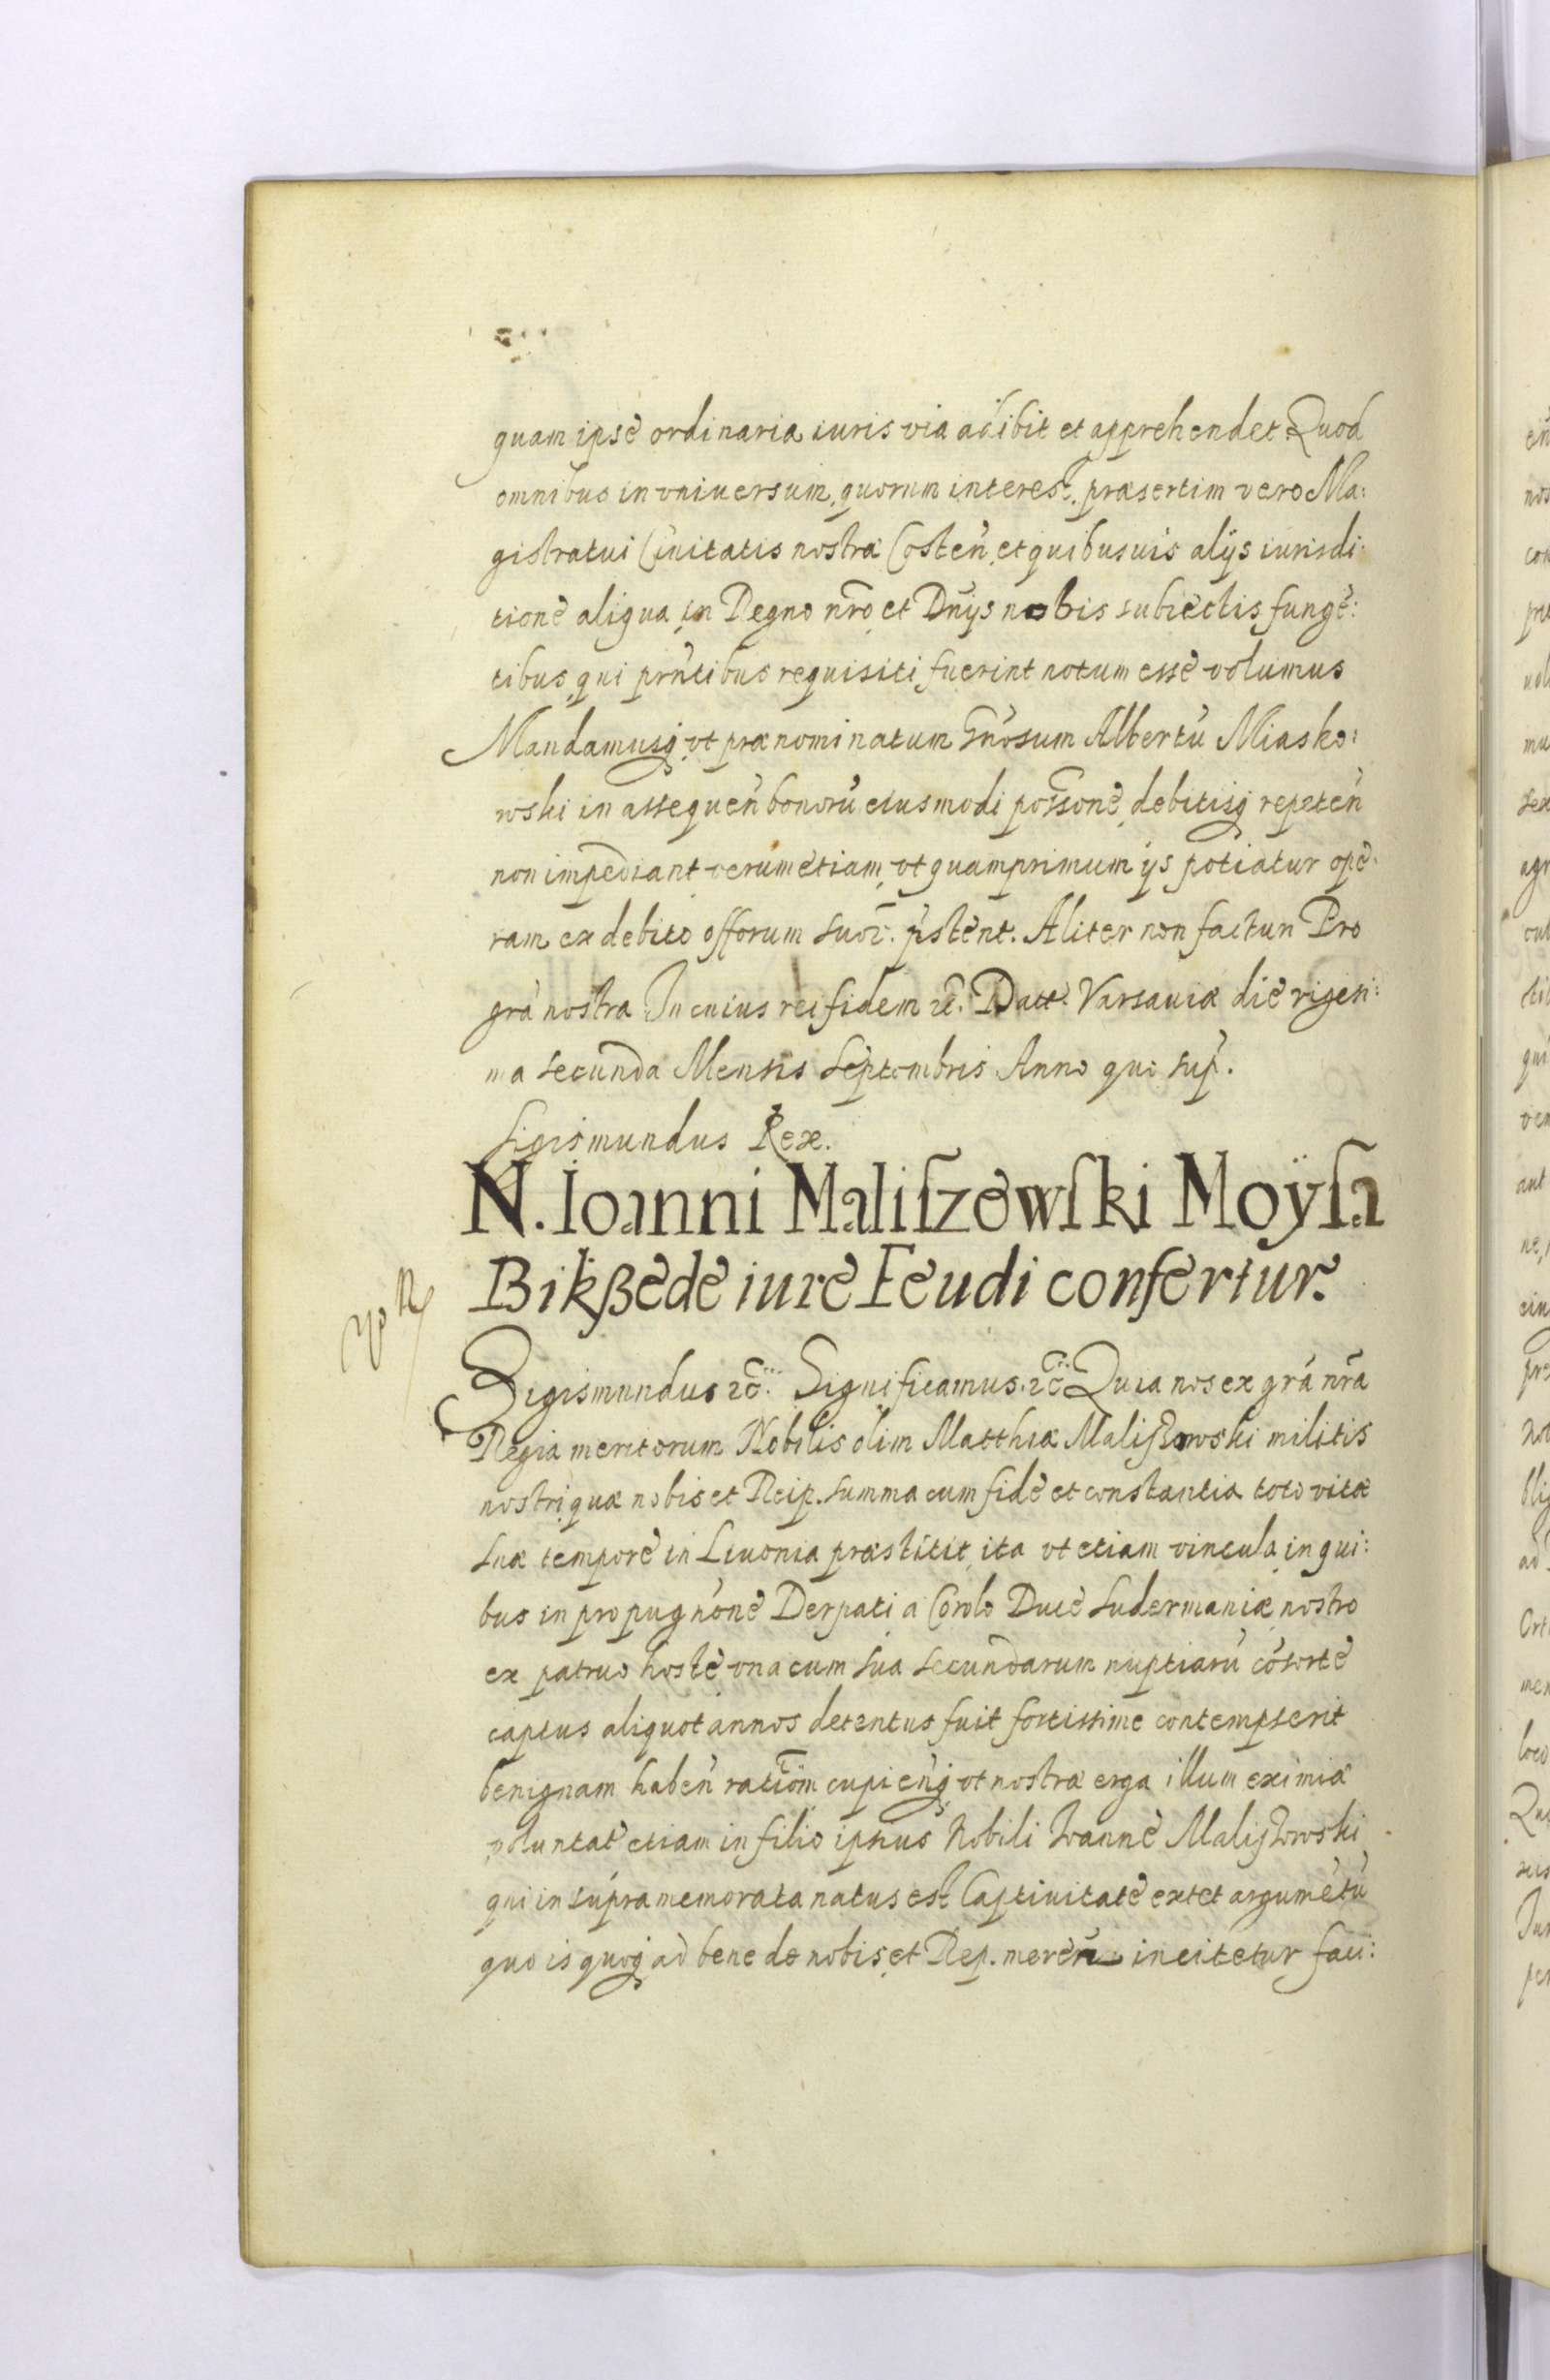 quam ipse ordinaria iuris via adibit et apprehendet Quod
omnibus in vniuersum, quorum interest, præsertim vero Ma:
gistratui Ciuitatis nostræ Costeñ, et quibusuis alijs iurisdi:
tione aliqua in Regno nr̃o et Dñijs nobis subiectis funge:
tibus, qui prñtibus requisiti fuerint notum esse volumus
Mandamusq, vt prænominatum Gñosum Albertũ Miasko:
wski in assequeñ bonorũ eiusmodi possone, debitisq repeteñ
non impediant verumetiam, vt quamprimum ijs potiatur ope:
ram ex debito offorum suor. p̃stent. Aliter non factur̃ Pro
grã nostra In cuius rei fidem &c̃. Datt. Varsauiæ die vigesi:
ma secunda Mensis Septembris Anno quo sup̃.
Sigismundus Rex.
N. Ioanni Maliſzewſki Moÿſa
Bikßede iure Feudi confertur.
Sigismundus &c̃. Significamus. &c̃ Quia nos ex grã nr̃a
Regia meritorum Nobilis olim Matthiæ Maliszowski militis
nostri, quæ nobis et Reip. summa cum fide et constantia toto vitæ
suæ tempore in Liuonia præstitit, ita vt etiam vincula, in qui:
bus in propugnõne Derpati a Corolo Duce Sudermaniæ nostro
ex patruo hoste vna cum sua secundarum nuptiarũ cõsorte
captus aliquot annos detentus fuit fortissime contempserit
benignam habeñ ratiõm cupieñq, vt nostræ erga illum eximiæ
voluntat etiam in filio ipsius Nobili Ioanne Maliszowski
qui in supramemorata natus est Captiuitate extet argumẽtũ
quo is quoq ad bene de nobis et Rep. mereñ incitetur faci: